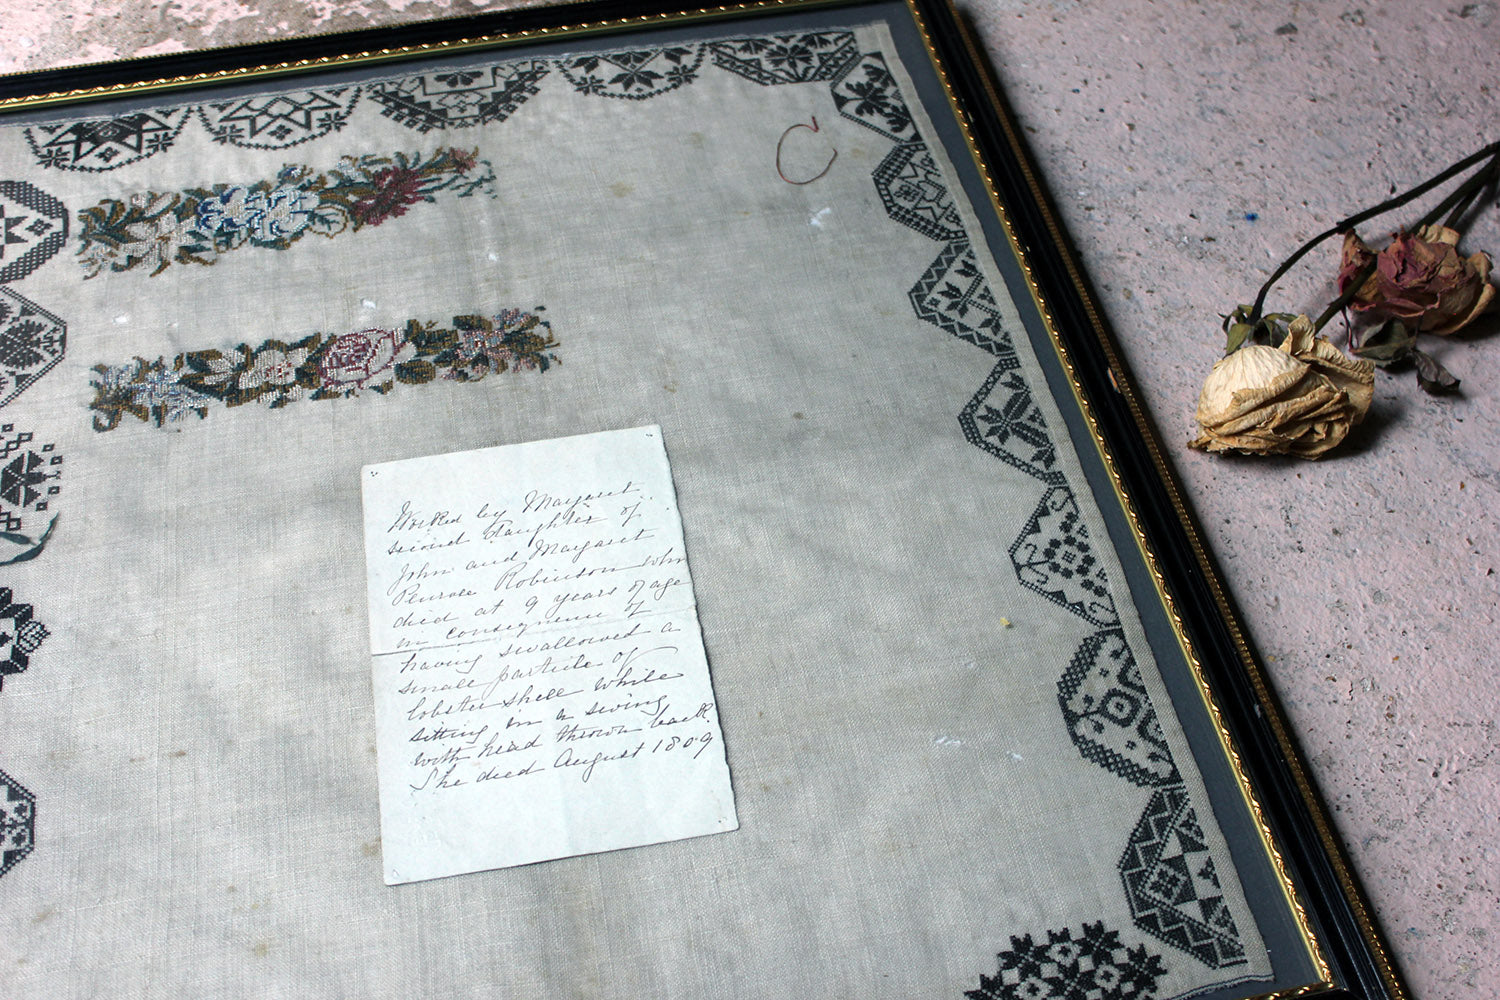 Worked by Margaret
second daughter of
John and Margaret
Penrose Robinson who
died at 9 years of age
in consequence of
having swallowed a
small particle of
lobster shell while
sitting in a swing
with head thrown back.
She died August 1809